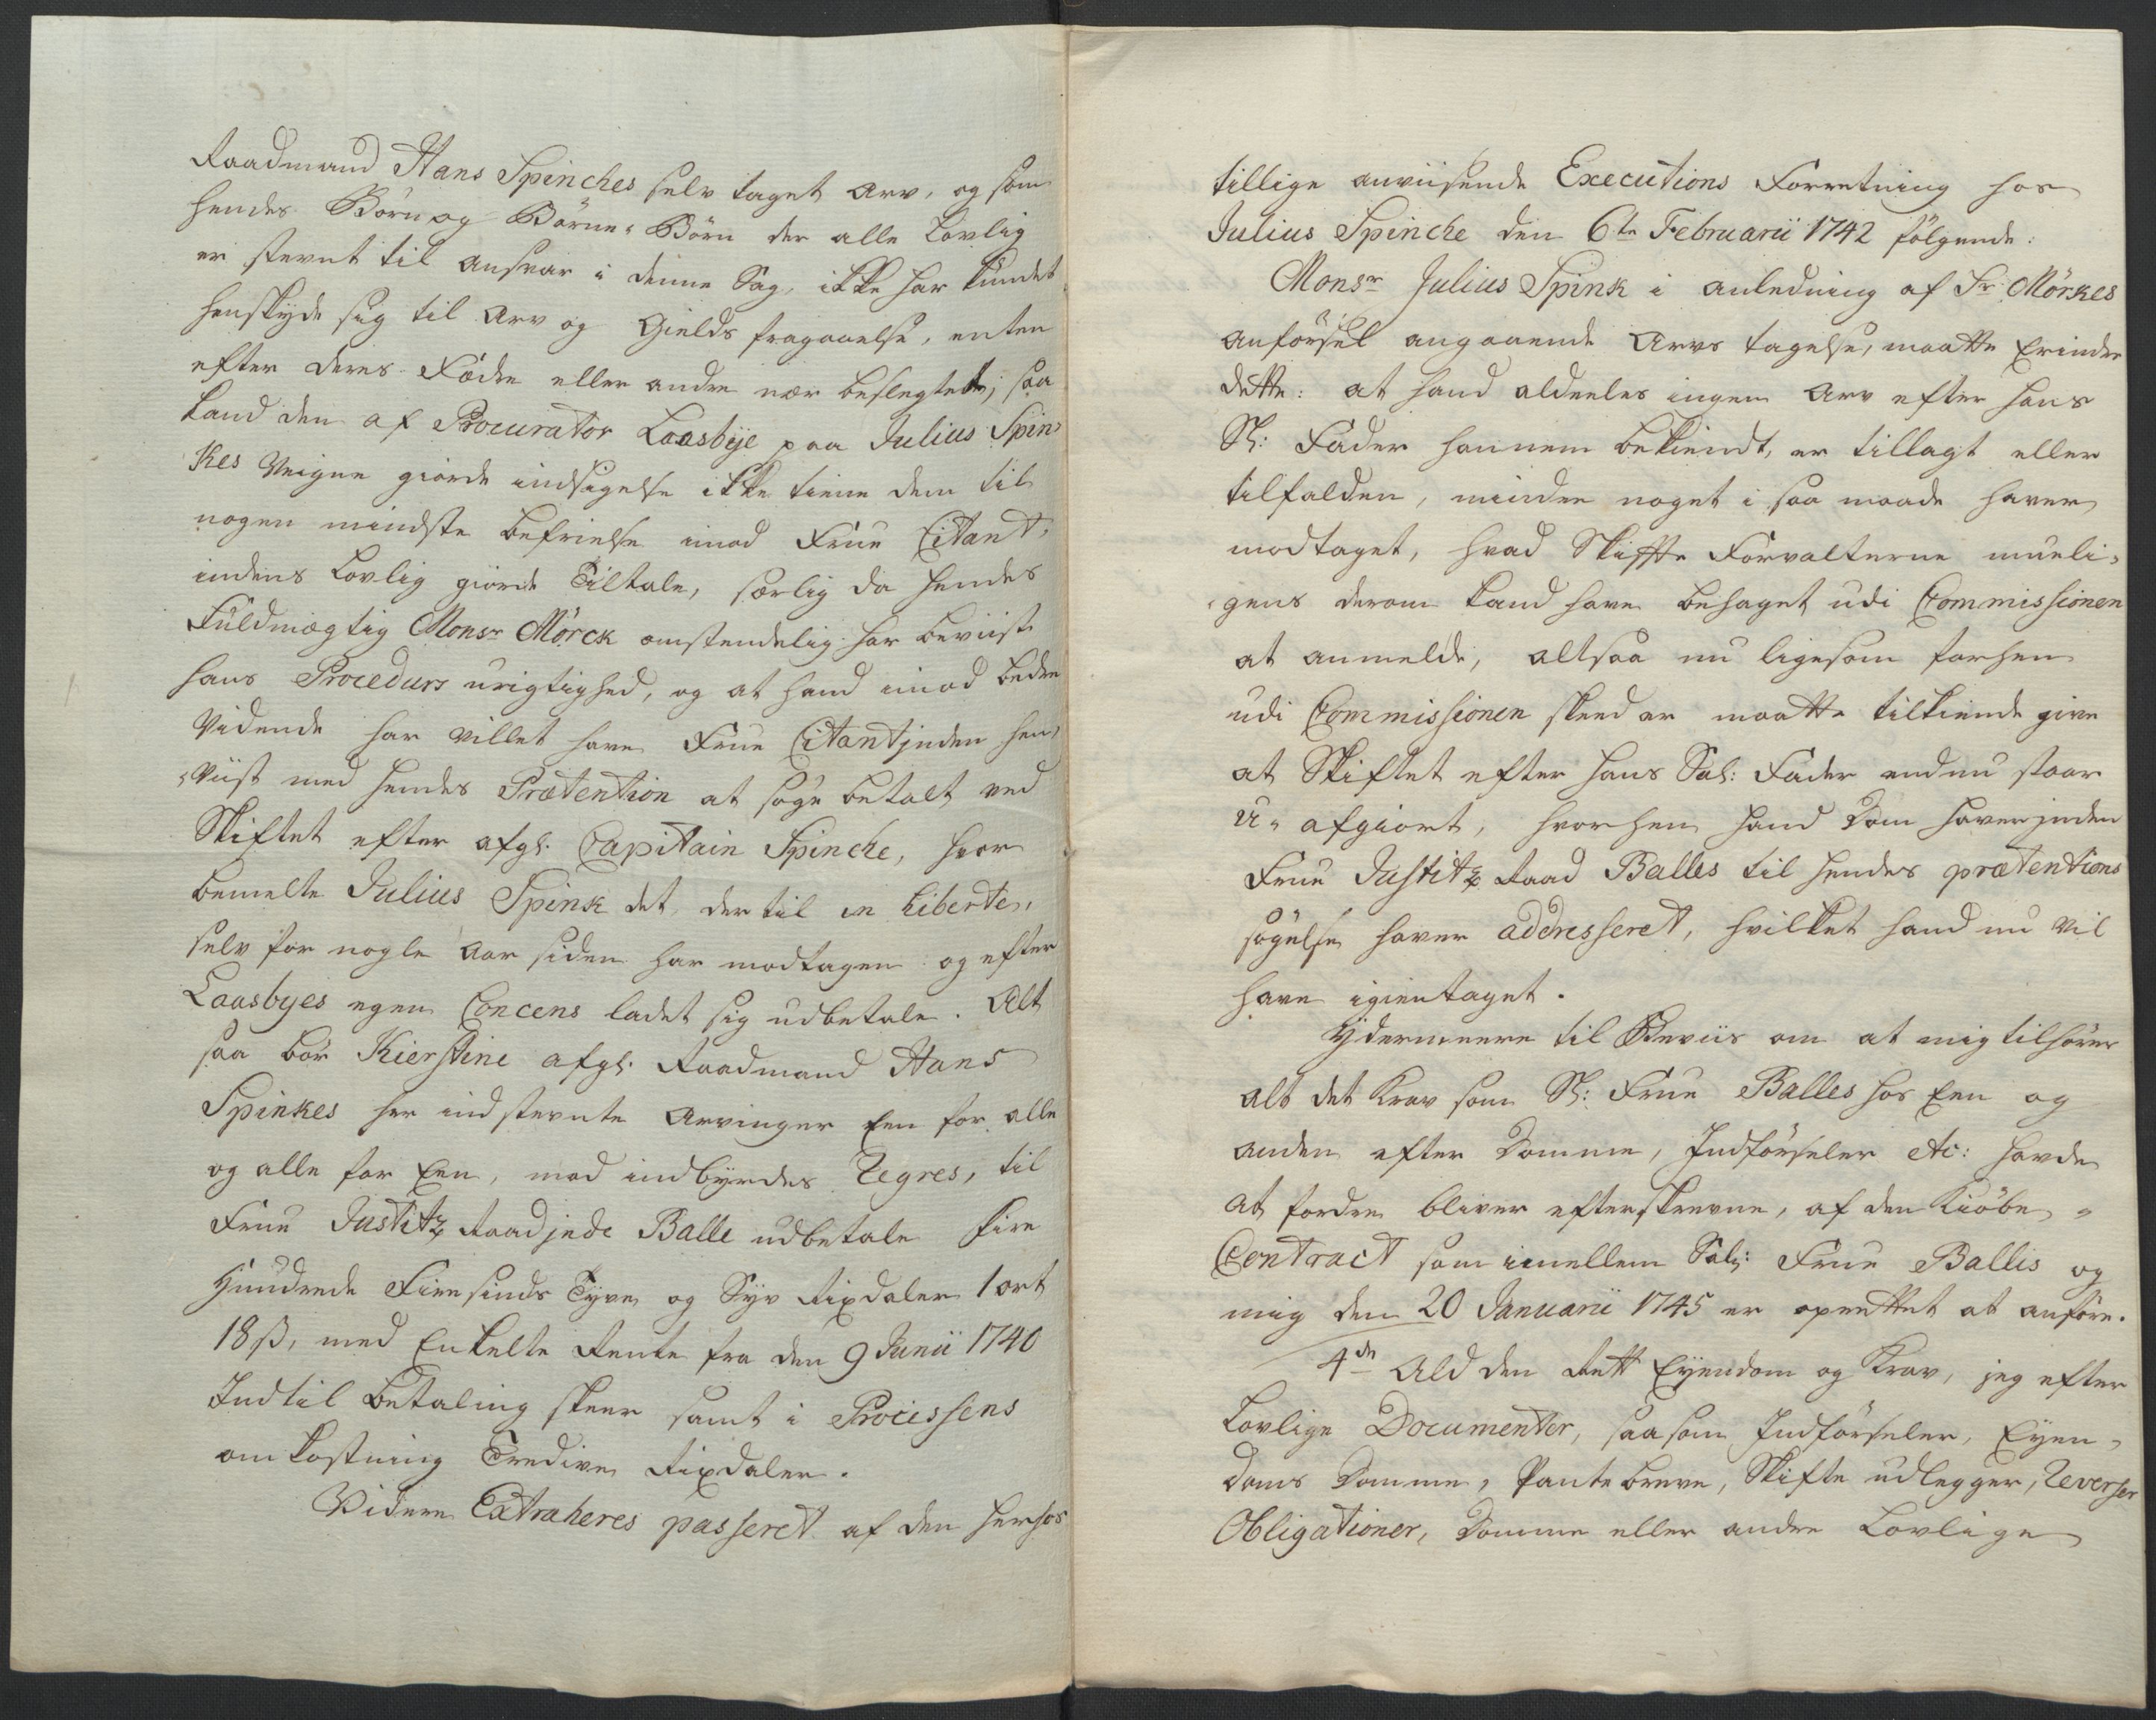 Raadmand Hans Spinches selv taget Arv, og som
hendes Börn og Börne-Börn der alle Lovlig
er stevnt til ansvar i denne Sag, ikke har kundet
henskyde sig til Arv og Gields fragaaelse, enten
efter deres Födre eller andre nær beslegtede; saa
kand den af Procurator Laasbye paa Julius Spin-
kes Veigne giorde indsigelse ikke tiene dem til
nogen mindste befrielse imod Frue Citant-
indens Lovlig giorde Tiltale, særlig da hendes
Fuldmægtig Monsr Mörck omstendelig har beviist
hans Procedurs urigtighed, og at hand imod bedre
Vidende har villet have Frue Citantjnden hen-
-viist med hendes Prætention at söge betalt ved
Skiftet efter afgl. Capitain Spinche, hvor
bemelte Julius Spink det, der til in Liberte,
selv for nogle Aar siden har modtagen og efter
Laasbyes egen Concens ladet sig udbetale. Alt
saa bör Kierstine afgl. Raadmand Hans
Spinkes her indstevnte Arvinger Een for alle
og alle for Een, med indbyrdes Regres, til
Frue Justitz Raadjnde Balle udbetale Fire
Hundrede Firesinds Tyve og Syv Rixdaler 1 ort
18 ß, med Enkelte Rente fra den 9 Junii 1740
Indtil betaling skeer samt i Processens
omkostning Tredive Rixdaler.
Videre Extraheres passeret af den herhos
tillige anviisende Executions Forretning hos
Julius Spinche den 6te Februarii 1742 fölgende:
Monsr Julius Spink i anledning af Sr. Mörkes
anförsel angaaende Arvs tagelse, maatte Erindre
dette: at hand aldeeles ingen Arv efter hans
Sl: Fader hannem bekiendt, er tillagt eller
tilfalden, mindre noget i saa maade haver
modtaget, hvad Skiffte Forvalterne mueli-
-gens derom kand have behaget udi Commissionen
at anmelde, altsaa nu ligesom forhen
udi Commissionen skeed er maatte tilkiende give
at Skiftet efter hans Sal: Fader endnu staar
u-afgiort, hvorhen hand Dom haverjnden
Frue Justitz Raad Balles til hendes prætentions
sögelse haver addresseret, hvilket hand nu vil
have igientaget.
Ydermeere til Beviis om at mig tilhörer
alt det Krav som Sl: Frue Balles hos Een og
anden efter Domme, Indförseler etc: havde
at fordre bliver efterskrevne, af den Kiöbe-
Contract som imellem Sal: Frue Ballis og
mig den 20 Januarii 1745 er oprettet at anföre.
4de Ald den Rett Eyendom og Krav, jeg efter
Lovlige Documenter, saasom Indförseler, Eyen-
doms Domme, Pantebreve, Skifte udlegger, Reverser
Obligationer, Domme eller andre Lovlige